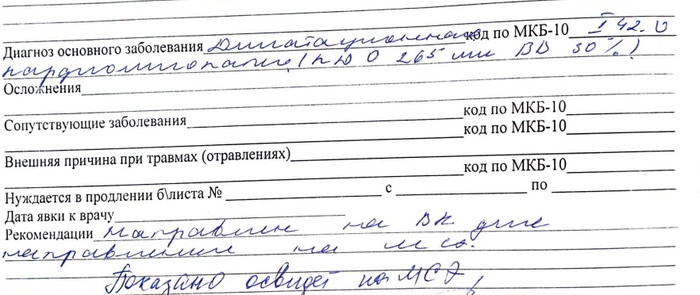 Диагноз основного заболевания Дилатационная код по МКБ-10 I 42.0
кардиомиопатия (КДО 265 мл ФВ 30%)
Осложнения
код по МКБ-10
Сопутствующие заболевания код по МКБ-10
Внешняя причина при травмах (отравлениях)
код по МКБ-10
Нуждается в продлении б\листа № с по
Дата явки к врачу
Рекомендации направлен на ВК для
направления на мсэ.
Показано освидет на МСЭ